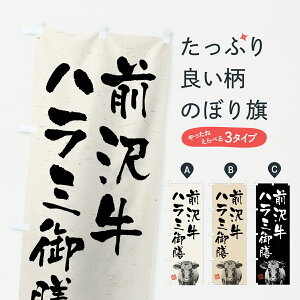 前沢牛
ハラミ御膳
たっぷり
良い柄
のぼり旗
やったね
えらべる3タイプ
A
B
C
前沢牛
ハラミ御膳
前沢牛
ハラミ御膳
前沢牛
ハラミ御膳